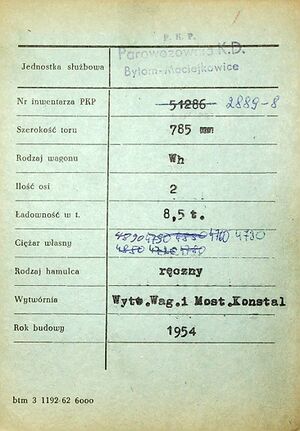 P. K. P.
Parowozownia K.D.
Bytom-Maciejkowice
Jednostka służbowa
Nr inwentarza PKP 51286 2889-8
Szerokość toru 785 mm
Rodzaj wagonu Wh
Ilość osi 2
Ładowność w t. 8,5 t.
Ciężar własny 4890 4790 4850 4760 4790
4850
Rodzaj hamulca ręczny
Wytwórnia Wytw.Wag.i Most.Konstal
Rok budowy 1954
btm 3 1192-62 6000